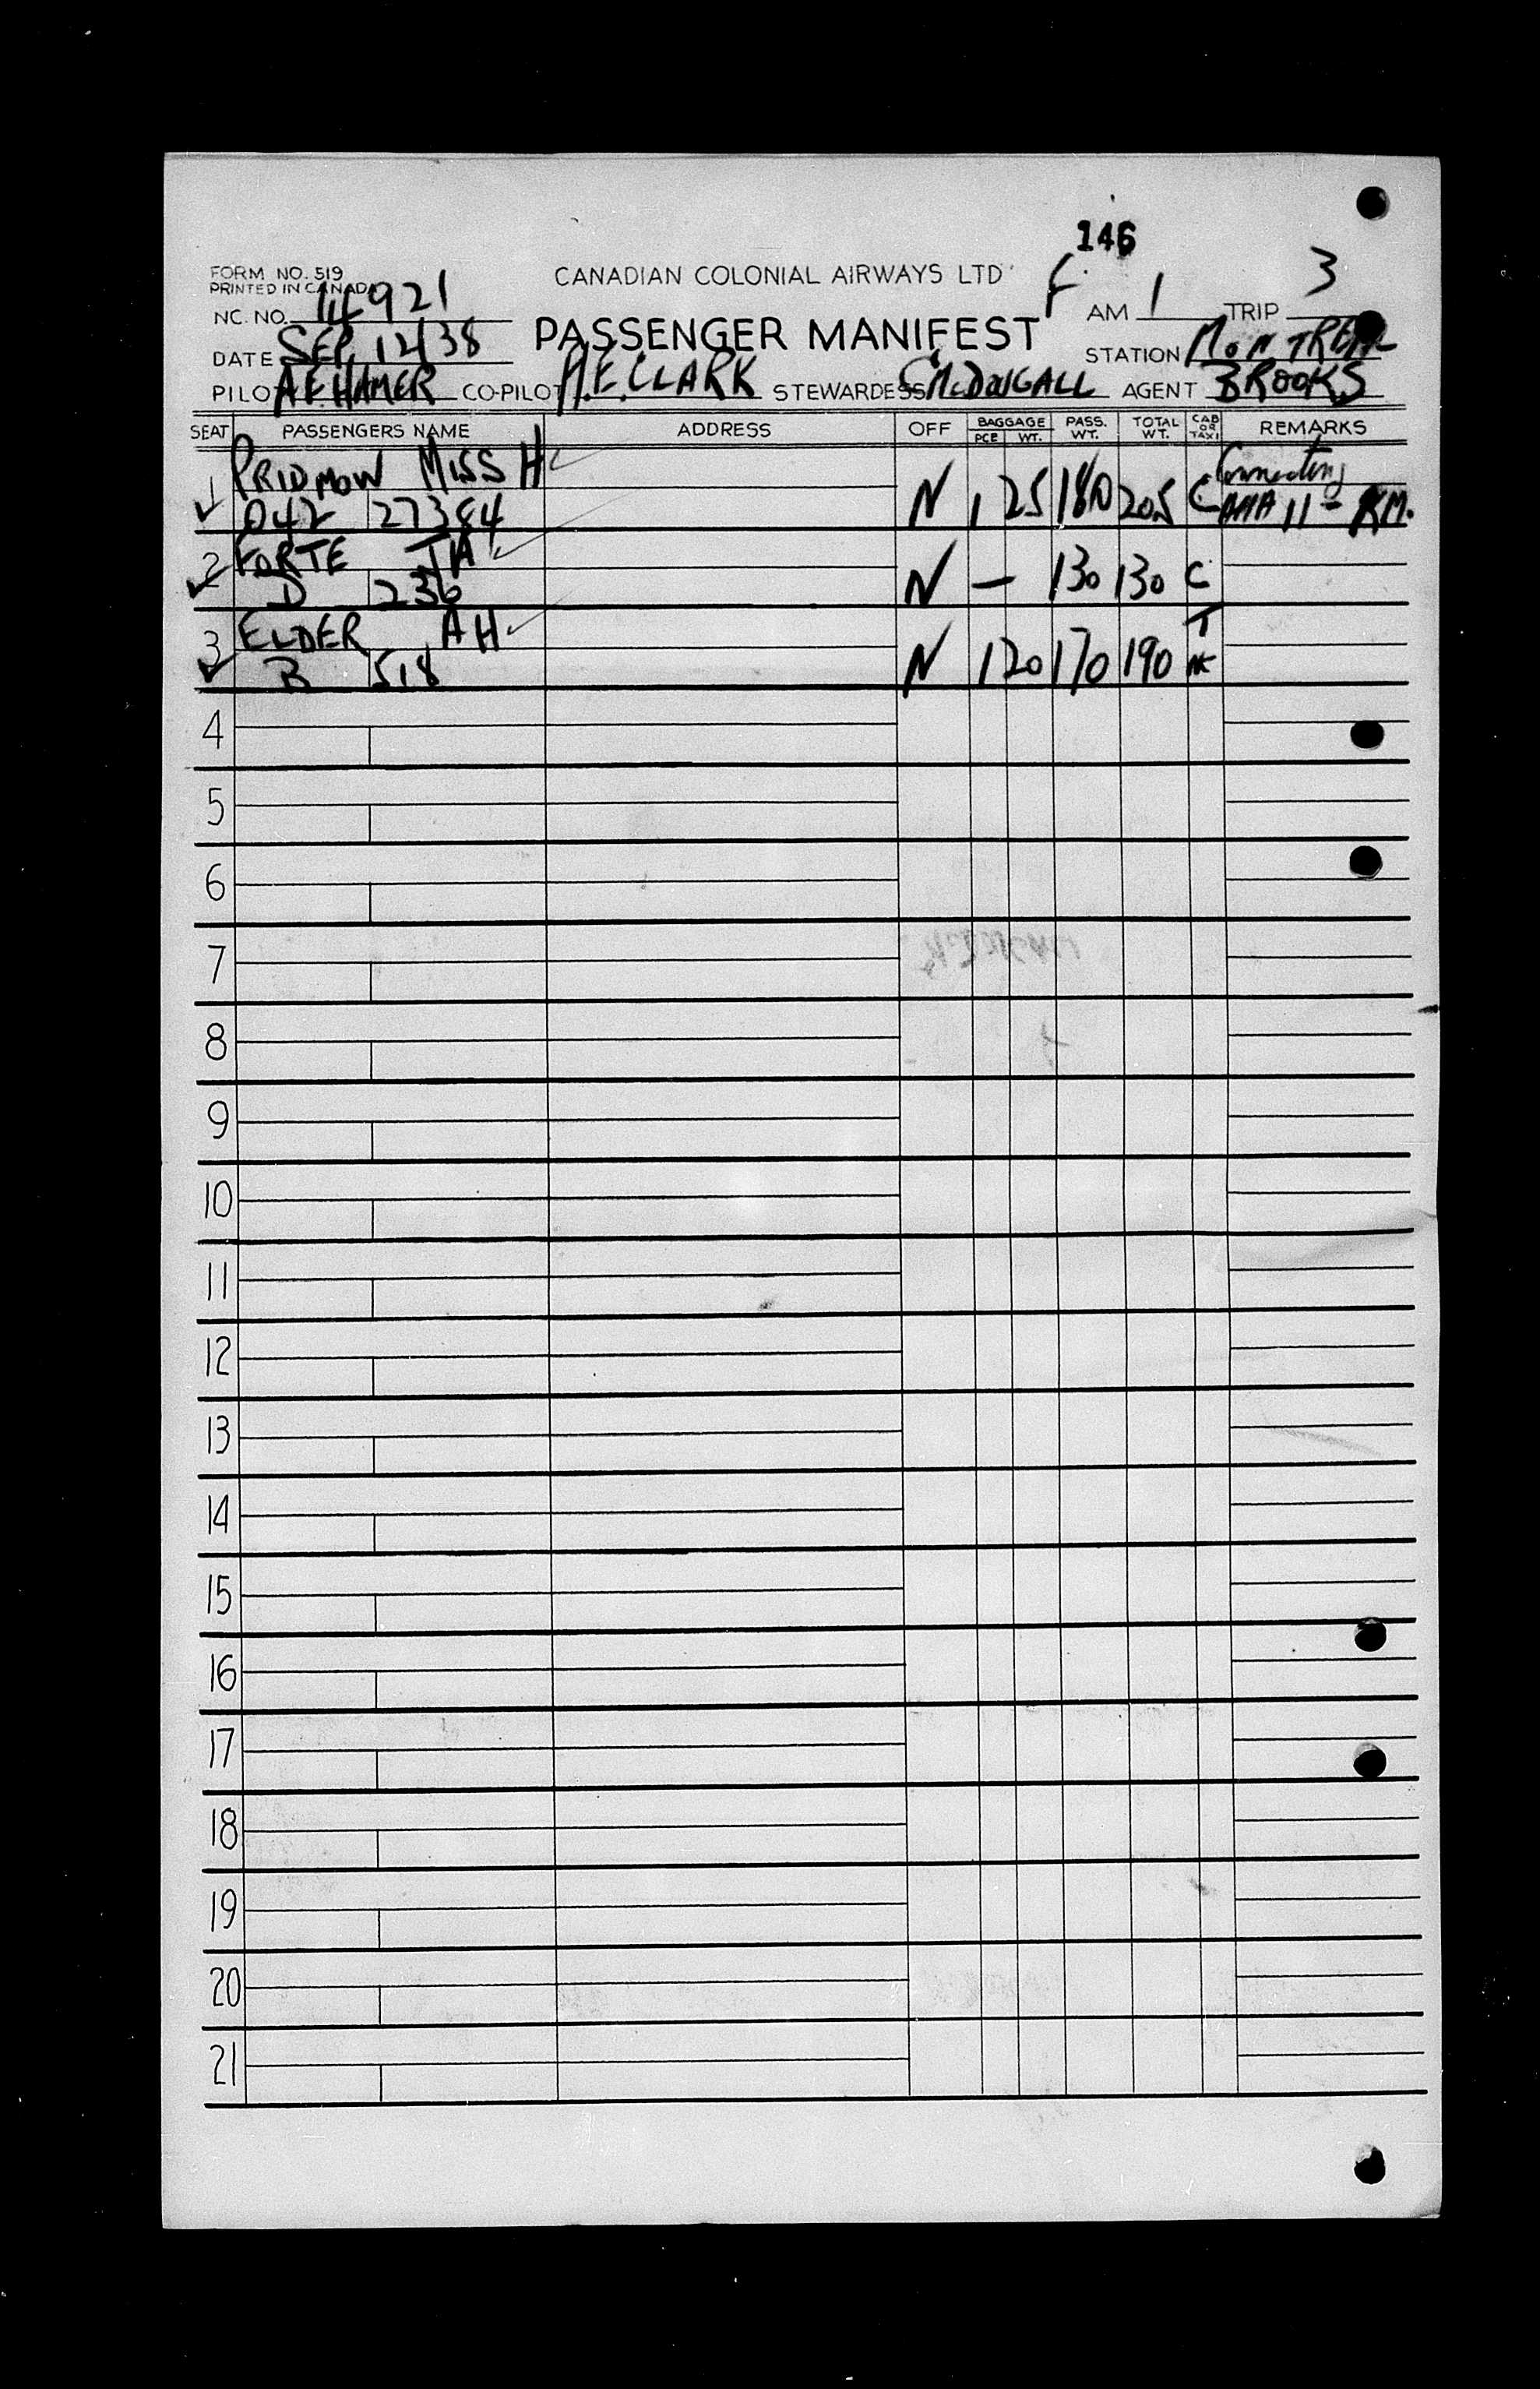 146
FORM NO. 519
PRINTED IN CANADA
CANADIAN COLONIAL AIRWAYS LTD
F
NC. NO. 14921
AM 1 TRIP 3
DATE SEP 12/38
PASSENGER MANIFEST
STATION MONTREAL
PILOT A.E.HAMER CO-PILOT H.E.CLARK STEWARDESS C McDOUGALL AGENT BROOKS
SEAT PASSENGERS NAME ADDRESS OFF BAGGAGE PCE WT. PASS. WT. TOTAL WT. CAB OR TAXI REMARKS
1 PRIDMOW MISS H Connecting
042 27384 N 1 25 180 205 C AMA 11 - KM.
2 FORTE JA
D 236 N — 130 130 C
3 ELDER AH T
B 518 N 1 20 170 190
4
5
6
7
8
9
10
11
12
13
14
15
16
17
18
19
20
21